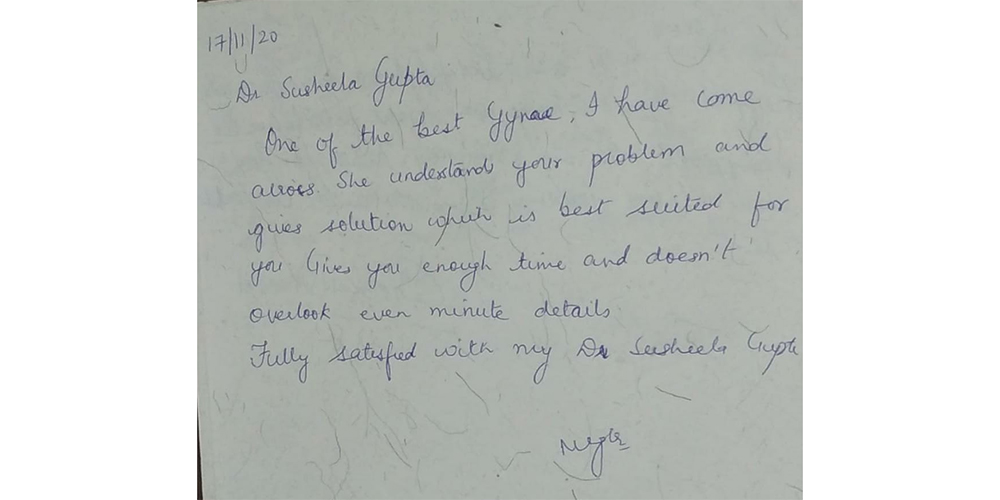 17/11/20
Dr Susheela Gupta
One of the best Gynae, I have come
across. She understand your problem and
gives solution which is best suited for
you Gives you enough time and doesn't
overlook even minute details
Fully satisfied with my Dr Susheela Gupta